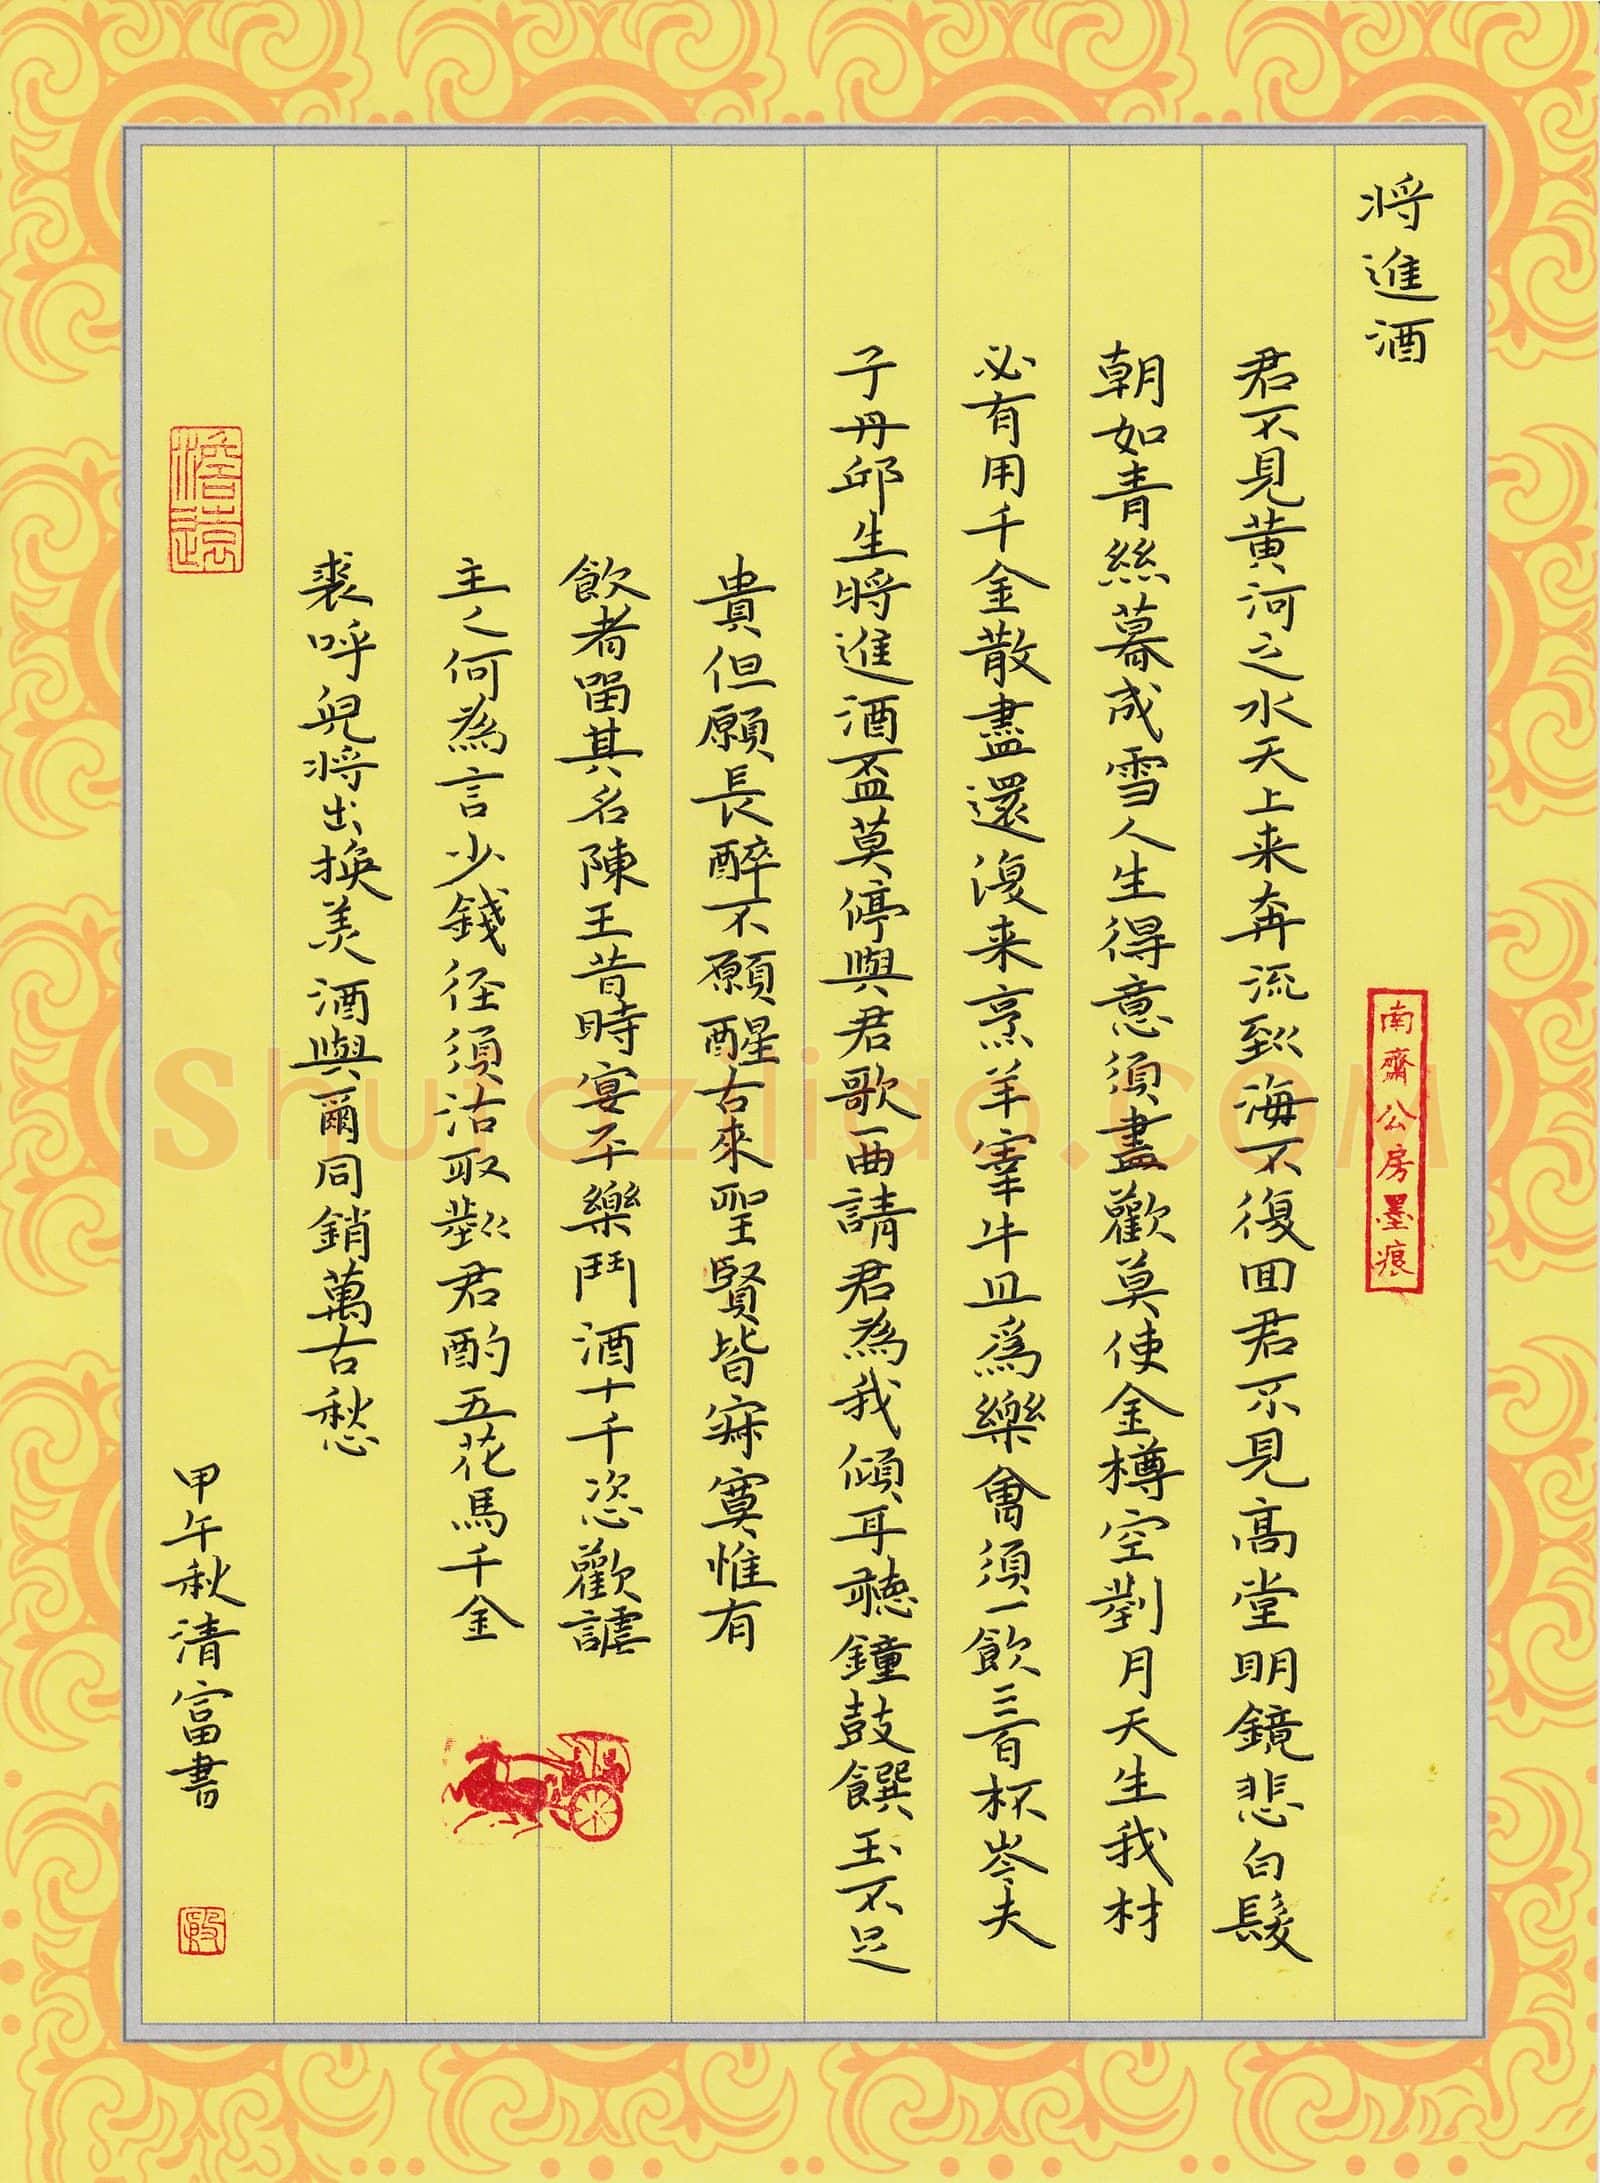 将進酒
君不見黄河之水天上来奔流到海不復回君不見高堂明鏡悲白髮
朝如青絲暮成雪人生得意須盡歡莫使金樽空對月天生我材
必有用千金散盡還復来烹羊宰牛且爲樂會須一飲三百杯岑夫
子丹邱生將進酒盃莫停與君歌一曲請君為我傾耳聽鐘鼓饌玉不足
貴但願長醉不願醒古來聖賢皆寂寞惟有
飲者留其名陳王昔時宴平樂鬥酒十千恣歡謔
主之何為言少錢径須沽取對君酌五花馬千金
裘呼兒将出換美酒與爾同銷萬古愁
甲午秋清富書
南齋公房墨痕
Shufaziliao.com